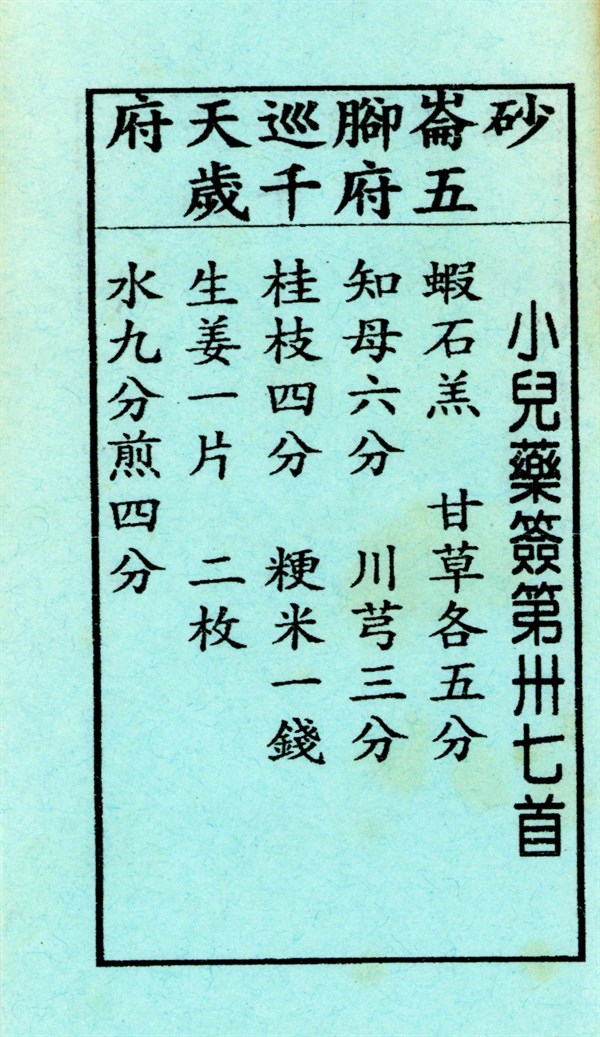 砂崙腳巡天府
五府千歲
小兒藥簽第卅七首
蝦石羔 甘草各五分
知母六分 川芎三分
桂枝四分 粳米一錢
生姜一片 二枚
水九分煎四分